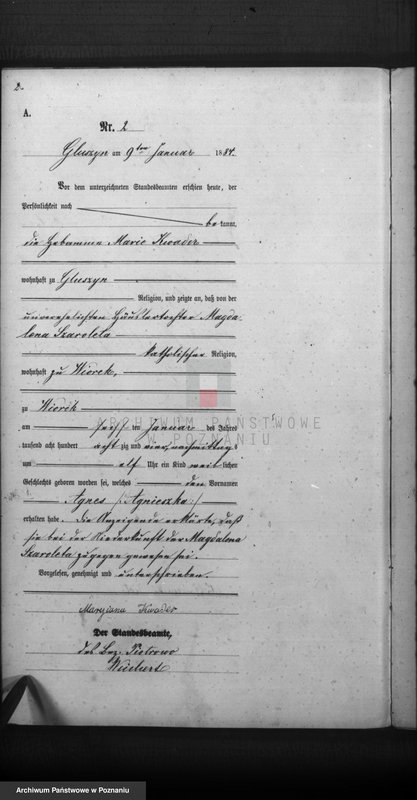 2.
A.
Nr. 2
Gluszyn am 9ten Januar 1884.
Vor dem unterzeichneten Standesbeamten erschien heute, der
Persönlichkeit nach
bekannt,
die Hebamme Marie Kwader
wohnhaft zu Gluszyn
Religion, und zeigte an, daß von der
unverehelichten Häuslertochter Magda-
lena Szaroleta
katholischer Religion,
wohnhaft zu Wiorek,
zu Wiorek
am sechsten Januar des Jahres
tausend acht hundert acht zig und vier, nachmittags
um elf Uhr ein Kind weiblichen
Geschlechts geboren worden sei, welches den Vornamen
Agnes /:Agnieszka:/
erhalten habe. Die Anzeigende erklärte, daß
sie bei der Niederkunft der Magdalena
Szaroleta zugegen gewesen sei.
Vorgelesen, genehmigt und unterschrieben.
Maryjana Kwader
Der Standesbeamte,
des Bez. Piotrowo
ARCHIWUM PAŃSTWOWE
W POZNANIU
Archiwum Państwowe w Poznaniu